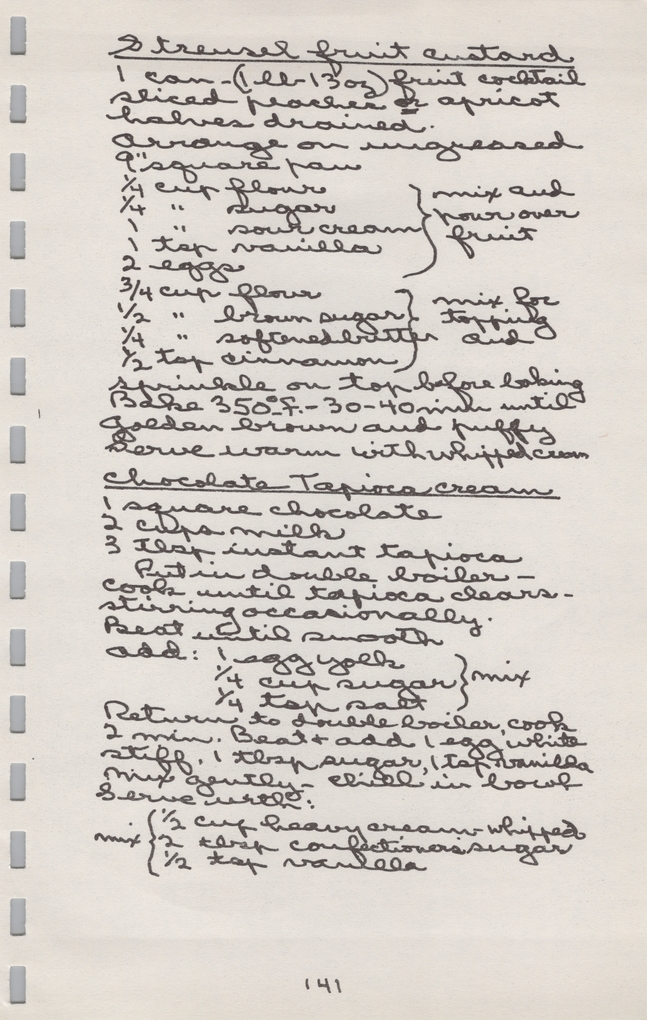 Streusel fruit custard
1 can - (1 lb-13oz) fruit cocktail
sliced peaches or apricot
halves drained.
Arrange on ungreased
9" square pan
1/4 cup flour
1/4 " sugar
1 " sour cream
1 tsp vanilla
2 eggs
mix and
pour over
fruit
3/4 cup flour
1/2 " brown sugar
1/4 " softened butter
1/2 tsp cinnamon
mix for
topping
and
sprinkle on top before baking
Bake 350° f. - 30-40 min until
golden brown and puffy
Serve warm with whipped cream
Chocolate Tapioca cream
1 square chocolate
2 cups milk
3 tbsp instant tapioca
Put in double boiler -
cook until tapioca clears -
stirring occasionally.
Beat until smooth
add: 1 egg yolk
1/4 cup sugar
1/4 tsp salt
mix
Return to double boiler, cook
2 min. Beat + add 1 egg white
stiff, 1 tbsp sugar, 1 tsp vanilla
Mix gently - chill in bowl
Serve with:
mix
1/2 cup heavy cream whipped
2 tbsp confectioners sugar
1/2 tsp vanilla
141